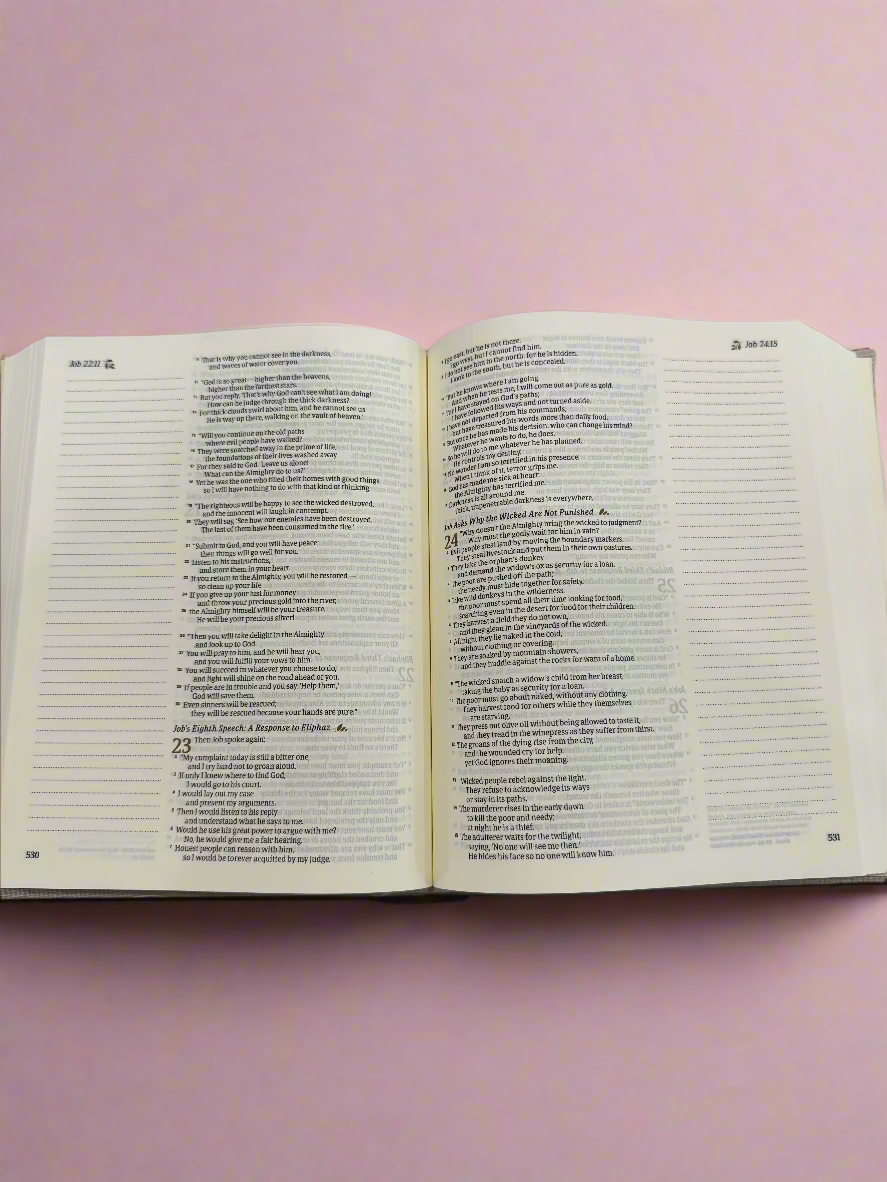 Job 22:11
11 That is why you cannot see in the darkness,
and waves of water cover you.
12 "God is so great—higher than the heavens,
higher than the farthest stars.
13 But you reply, 'That's why God can't see what I am doing!
How can he judge through the thick darkness?
14 For thick clouds swirl about him, and he cannot see us.
He is way up there, walking on the vault of heaven.'
15 "Will you continue on the old paths
where evil people have walked?
16 They were snatched away in the prime of life,
the foundations of their lives washed away.
17 For they said to God, 'Leave us alone!
What can the Almighty do to us?'
18 Yet he was the one who filled their homes with good things,
so I will have nothing to do with that kind of thinking.
19 "The righteous will be happy to see the wicked destroyed,
and the innocent will laugh in contempt.
20 They will say, 'See how our enemies have been destroyed.
The last of them have been consumed in the fire.'
21 "Submit to God, and you will have peace;
then things will go well for you.
22 Listen to his instructions,
and store them in your heart.
23 If you return to the Almighty, you will be restored—
so clean up your life.
24 If you give up your lust for money
and throw your precious gold into the river,
25 the Almighty himself will be your treasure.
He will be your precious silver!
26 "Then you will take delight in the Almighty
and look up to God.
27 You will pray to him, and he will hear you,
and you will fulfill your vows to him.
28 You will succeed in whatever you choose to do,
and light will shine on the road ahead of you.
29 If people are in trouble and you say, 'Help them,'
God will save them.
30 Even sinners will be rescued;
they will be rescued because your hands are pure."
Job's Eighth Speech: A Response to Eliphaz
23 Then Job spoke again:
2 "My complaint today is still a bitter one,
and I try hard not to groan aloud.
3 If only I knew where to find God,
I would go to his court.
4 I would lay out my case
and present my arguments.
5 Then I would listen to his reply
and understand what he says to me.
6 Would he use his great power to argue with me?
No, he would give me a fair hearing.
7 Honest people can reason with him,
so I would be forever acquitted by my judge.
530
Job 24:15
8 I go east, but he is not there.
I go west, but I cannot find him.
9 I do not see him in the north, for he is hidden.
I look to the south, but he is concealed.
10 "But he knows where I am going.
And when he tests me, I will come out as pure as gold.
11 For I have stayed on God's paths;
I have followed his ways and not turned aside.
12 I have not departed from his commands,
but have treasured his words more than daily food.
13 But once he has made his decision, who can change his mind?
Whatever he wants to do, he does.
14 So he will do to me whatever he has planned.
He controls my destiny.
15 No wonder I am so terrified in his presence.
When I think of it, terror grips me.
16 God has made me sick at heart;
the Almighty has terrified me.
17 Darkness is all around me;
thick, impenetrable darkness is everywhere.
Job Asks Why the Wicked Are Not Punished
24 "Why doesn't the Almighty bring the wicked to judgment?
Why must the godly wait for him in vain?
2 Evil people steal land by moving the boundary markers.
They steal livestock and put them in their own pastures.
3 They take the orphan's donkey
and demand the widow's ox as security for a loan.
4 The poor are pushed off the path;
the needy must hide together for safety.
5 Like wild donkeys in the wilderness,
the poor must spend all their time looking for food,
searching even in the desert for food for their children.
6 They harvest a field they do not own,
and they glean in the vineyards of the wicked.
7 All night they lie naked in the cold,
without clothing or covering.
8 They are soaked by mountain showers,
and they huddle against the rocks for want of a home.
9 "The wicked snatch a widow's child from her breast,
taking the baby as security for a loan.
10 The poor must go about naked, without any clothing.
They harvest food for others while they themselves
are starving.
11 They press out olive oil without being allowed to taste it,
and they tread in the winepress as they suffer from thirst.
12 The groans of the dying rise from the city,
and the wounded cry for help,
yet God ignores their moaning.
13 "Wicked people rebel against the light.
They refuse to acknowledge its ways
or stay in its paths.
14 The murderer rises in the early dawn
to kill the poor and needy;
at night he is a thief.
15 The adulterer waits for the twilight,
saying, 'No one will see me then.'
He hides his face so no one will know him.
531